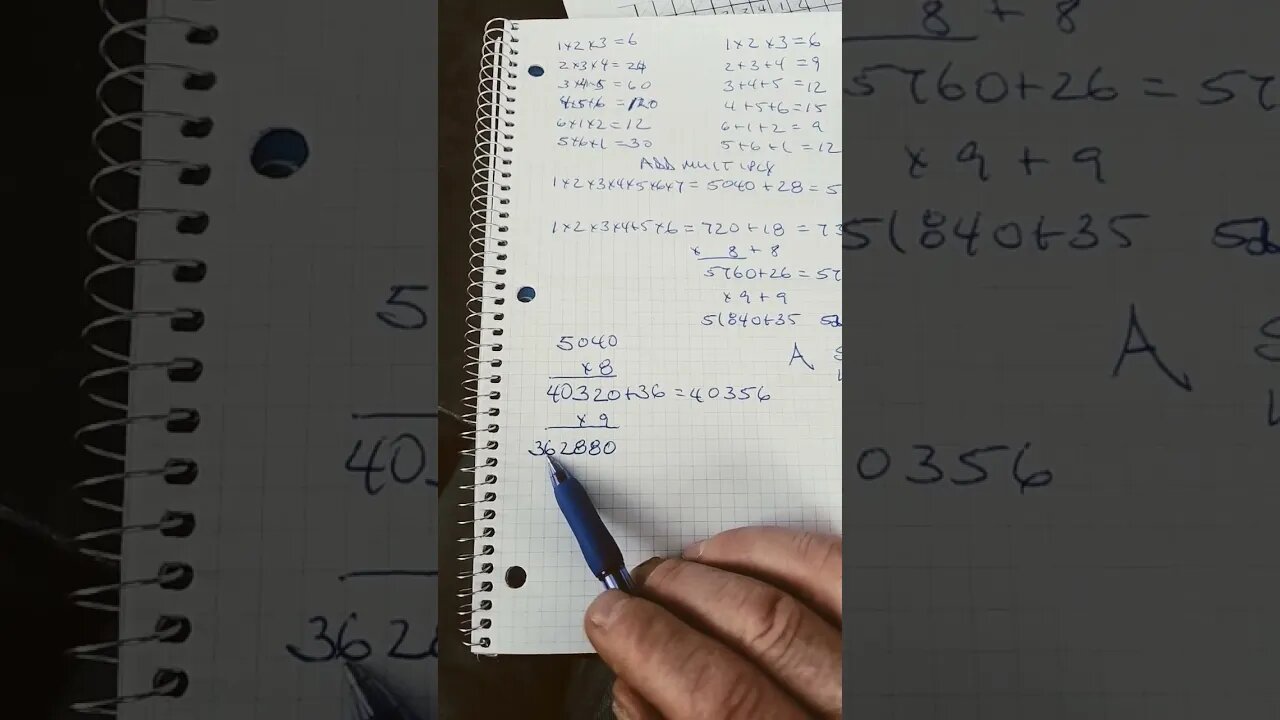 1×2×3=6
2×3×4=24
3×4×5=60
4×5×6=120
6×1×2=12
5×6×1=30
1×2×3=6
2+3+4=9
3+4+5=12
4+5+6=15
6+1+2=9
5+6+1=12
ADD MULTIPLY
1×2×3×4×5×6×7=5040+28=5
1×2×3×4×5×6=720+18=73
× 8+8
5760+26=57
×9+9
51840+35
5040
×8
40320+36=40356
×9
362880
A
8+8
5760+26=57
×9+9
51840+35
A
0356
5
40
362